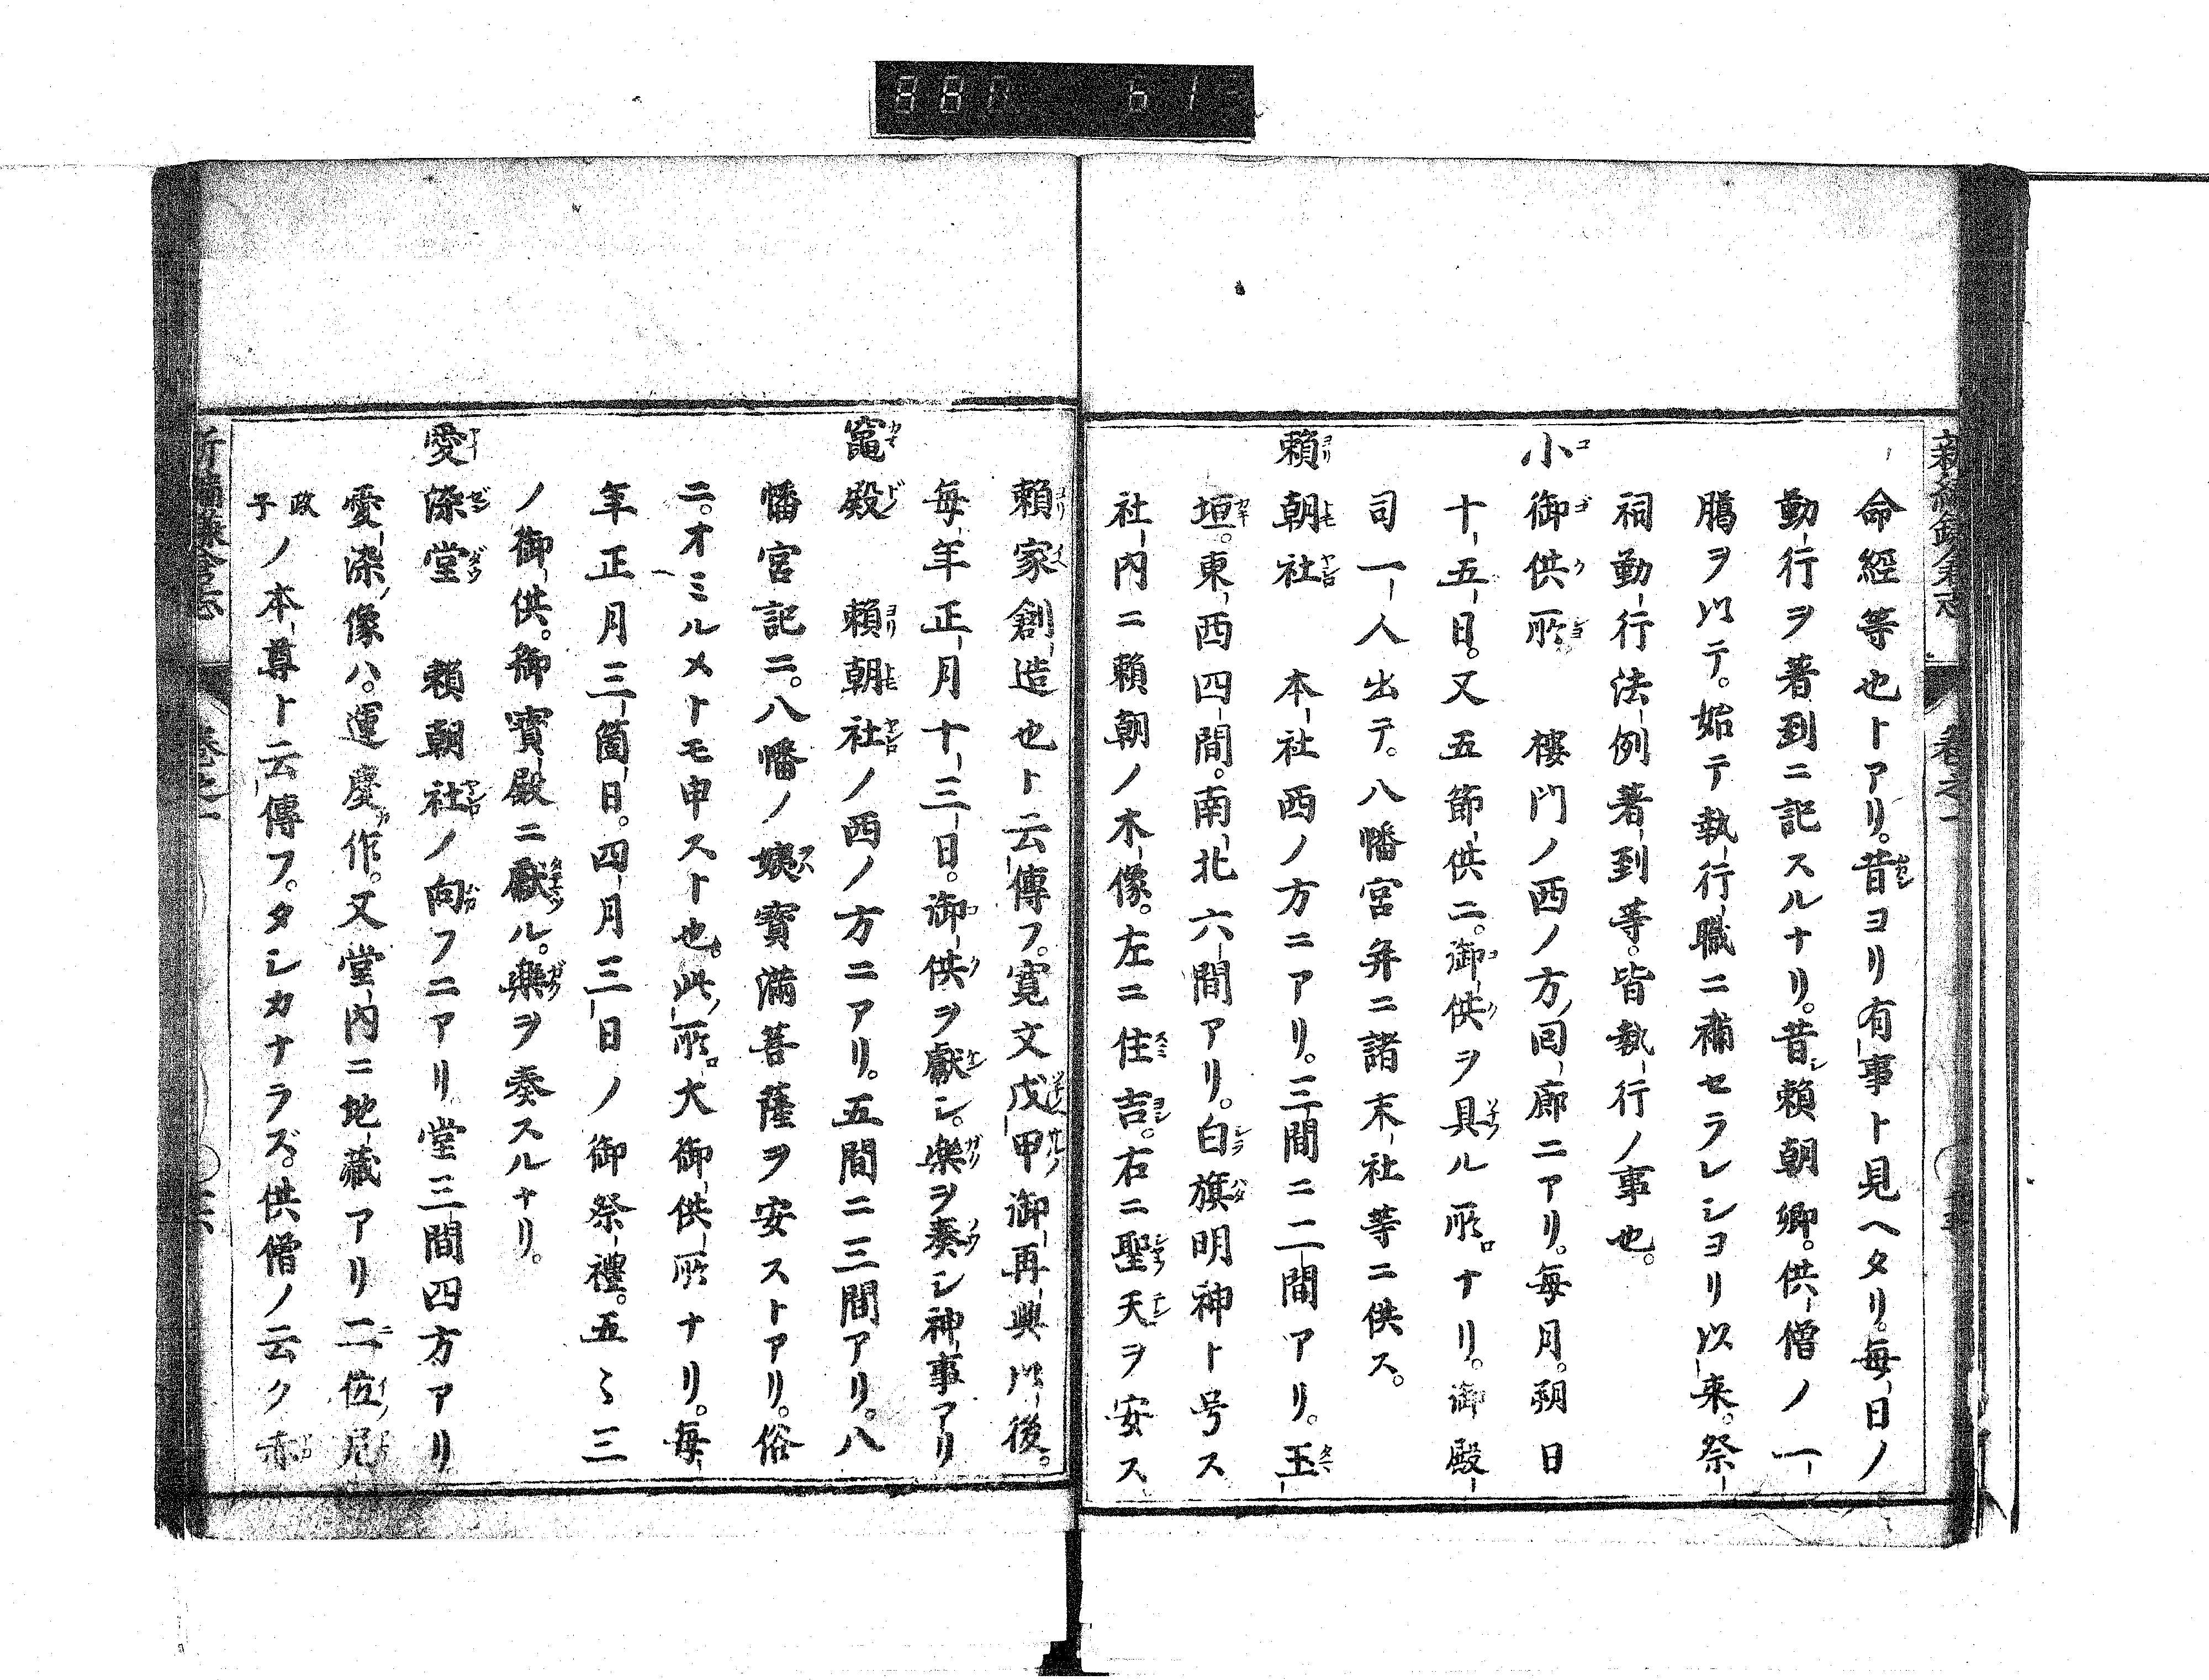 命經等也トアリ。昔ヨリ有事ト見ヘタリ。毎日ノ
勤行ヲ著到ニ記スルナリ。昔賴朝卿。供僧ノ一
臈ヲ以テ。始テ執行職ニ補セラレシヨリ以来。祭
祠勤行法例著到等。皆執行ノ事也。
小御供所 樓門ノ西ノ方、囘廊ニアリ。毎月。朔日
十五日。又五節供ニ。御供ヲ具ル所ナリ。御殿
司一人出テ。八幡宮弁ニ諸末社等ニ供ス。
賴朝社 本社西ノ方ニアリ。三間ニ二間アリ。玉
垣。東西四間。南北六間アリ。白旗明神ト号ス
社内ニ賴朝ノ木像。左ニ住吉。右ニ聖天ヲ安ス
賴家創造也ト云傳フ。寛文戊甲御再興以後。
毎年正月十三日。御供ヲ獻シ。樂ヲ奏シ神事アリ
竈殿 賴朝社ノ西ノ方ニアリ。五間ニ三間アリ。八
幡宮記ニ。八幡ノ姨寳満菩薩ヲ安ストアリ。俗
ニ。オミルメトモ申スト也。此所。大御供所ナリ。毎
年正月三箇日。四月三日ノ御祭禮。五〻三
ノ御供。御寳殿ニ獻ル。樂ヲ奏スルナリ。
愛染堂 賴朝社ノ向フニアリ堂三間四方アリ
愛染像ハ。運慶作。又堂内ニ地藏アリ二位尼
政子ノ本尊ト云傳フ。タシカナラズ。供僧ノ云ク赤
新編鎌倉志 卷之一